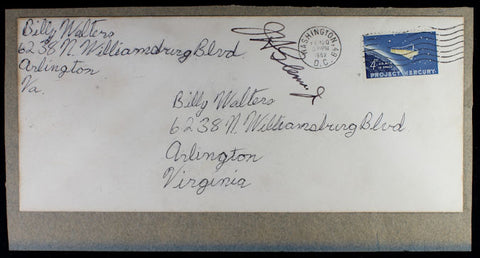 Billy Walters
6238 N. Williamsburg Blvd.
Arlington
Va.
WASHINGTON, 
D.C.
1962
4¢
PROJECT MERCURY
Billy Walters
6238 N. Williamsburg Blvd.
Arlington
Virginia